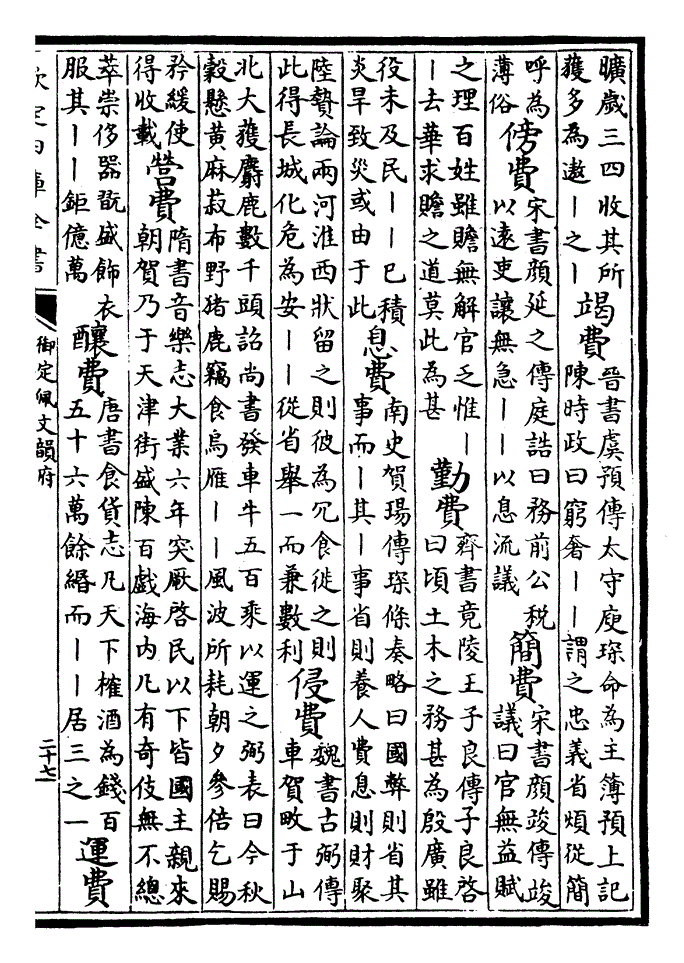 曠歲三四收其所
獲多為遨—之—
竭費
晉書虞預傳太守庾琛命為主簿預上記
陳時政曰窮奢——謂之忠義省煩從簡
呼為
薄俗
傍費
宋書顔延之傳庭誥曰務前公稅
以遠吏讓無急——以息流議
簡費
宋書顔竣傳竣
議曰官無益賦
之理百姓雖贍無解官乏惟—
—去華求贍之道莫此為甚
勤費
齊書竟陵王子良傳子良啓
曰頃土木之務甚為殷廣雖
役未及民——巳積
炎旱致災或由于此
息費
南史賀瑒傳琛條奏略曰國弊則省其
事而—其—事省則養人費息則財聚
陸贄論兩河淮西狀留之則彼為冗食徙之則
此得長城化危為安——從省舉一而兼數利
侵費
魏書古弼傳
車賀畋于山
北大獲麝鹿數千頭詔尚書發車牛五百乘以運之弼表曰今秋
穀懸黄麻菽布野猪鹿竊食鳥雁——風波所耗朝夕參倍乞賜
矜緩使
得收載
營費
隋書音樂志大業六年突厥啓民以下皆國主親來
朝賀乃于天津街盛陳百戲海内凡有奇伎無不總
萃崇侈器翫盛飾衣
服其——鉅億萬
釀費
唐書食貨志凡天下榷酒為錢百
五十六萬餘緡而——居三之一
運費
欽定四庫全書
御定佩文韻府
二十七